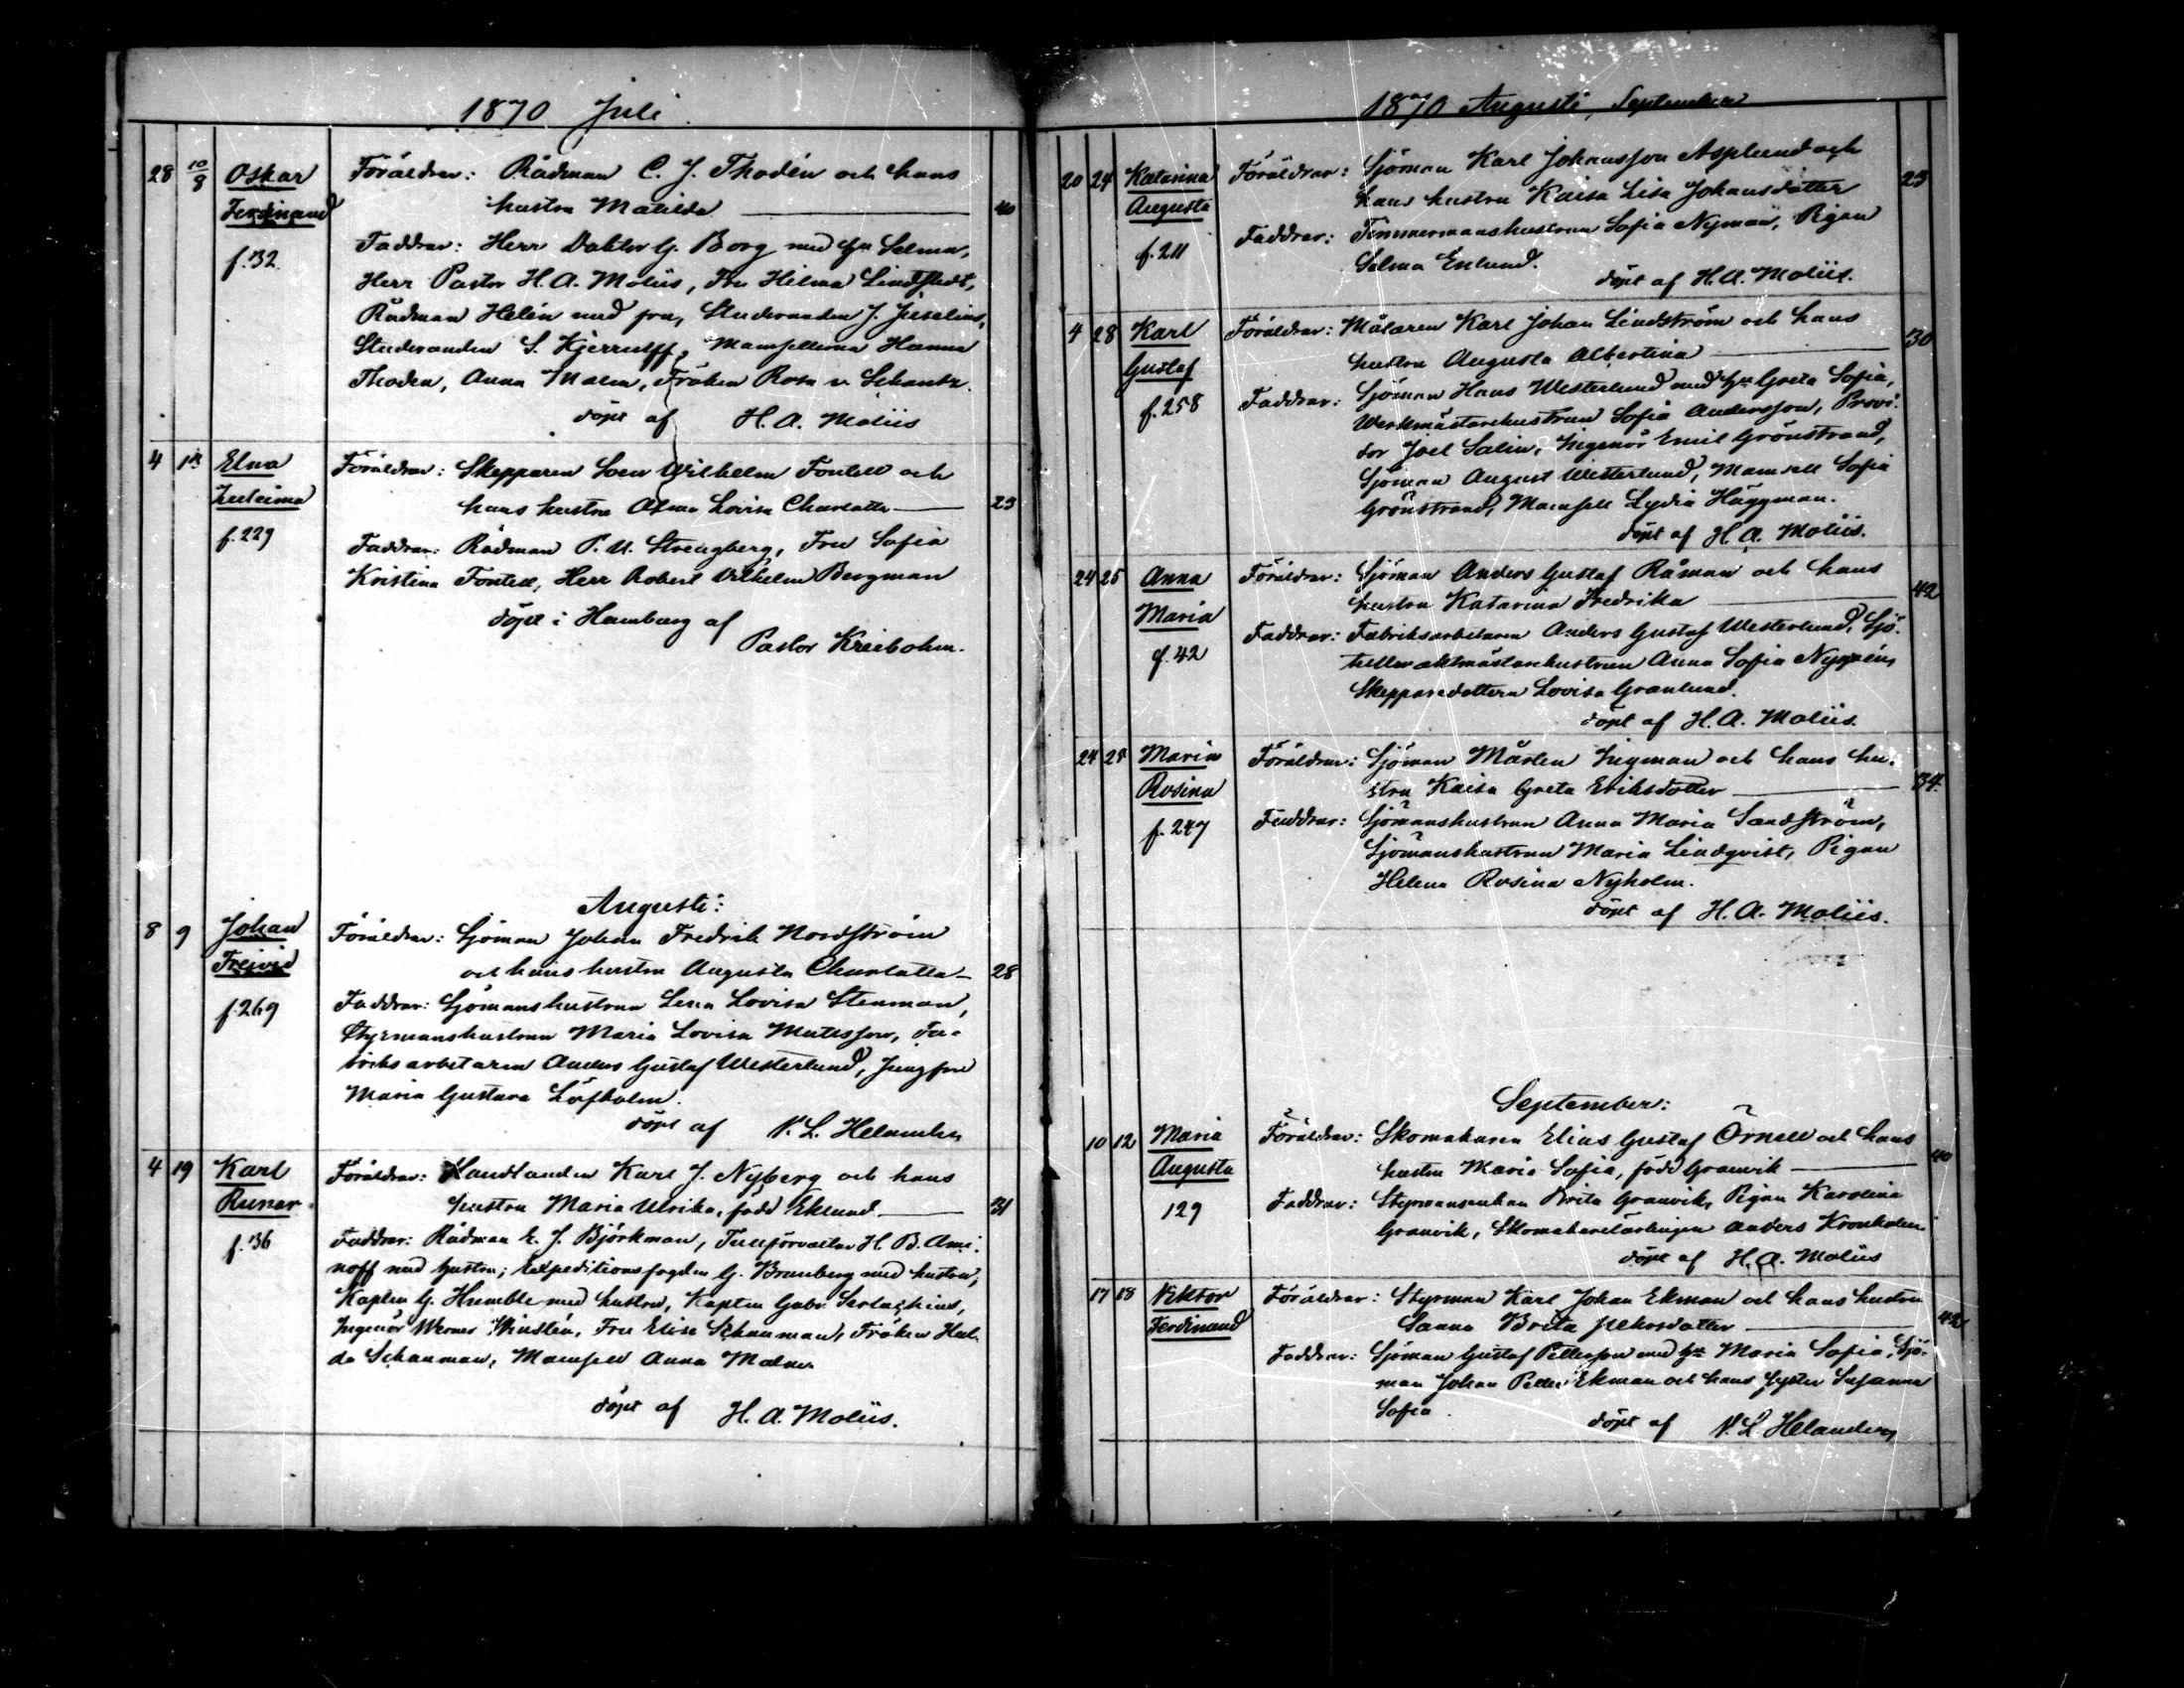 1870 Juli
28 10/8 Oskar Föräldrar: Rådman C. J. Thodén och hans
Ferdinand hustru Matilda 40
f. 32 Faddrar: Herr Doktor G. Borg med hu Selma,
Herr Pastor H. A. Moliis, Fru Hilma Lindstedt,
Rådman Helén med fru, Studeranden J.
Studeranden S. Kjerrulff, Mamsellerna Hanna
Thoden, Anna Malm, Fröken Rosa v. Schantz.
döpt af H. A. Moliis
4 Elna Föräldrar: Skepparen Sven Wilhelm Fontell och
hans hustru Alma Lovisa Charlotta 23
f. 229 Faddrar: Rådman P. U. Strengberg, Fru Sofia
Kristina Fontell, Herr Robert Vilhelm Bergman
döpt i Hamburg af
Pastor Kreibohm.
Augusti:
8 9 Johan Föräldrar: Sjöman Johan Fredrik Nordström
Freivid och hans hustru Augusta Charlotta 28
f. 269 Faddrar: Sjömanshustrun Lena Lovisa Stenman,
Styrmanshustrun Maria Lovisa Matsson, Fa-
briksarbetaren Anders Gustaf Westerlund, Jungfru
Maria Gustava Löfholm.
döpt af N. L. Helander
4 19 Karl Föräldrar: Handlanden Karl J. Nyberg och hans
Runar hustru Maria Ulrika, född Eklund 31
f. 36 Faddrar: Rådman E. J. Björkman, Tullförvaltar H. B. Ami-
noff med hustru; Expeditionsfogden G. Brunberg med hustru,
Kapten G. Humble med hustru, Kapten Gabr.
Ingeniör Werner Winstén, Fru Elise Schauman, Fröken Hul-
da Schauman, Mamsell Anna Malm
döpt af H. A. Moliis.
1870 Augusti, September
20 24 Katarina Föräldrar: Sjöman Karl Johansson Asplund och
Augusta hans hustru Kaisa Lisa Johansdotter 23
f. 211 Faddrar: Timmermanshustrun Sofia Nyman, Pigan
Selma Enlund.
döpt af H. A. Moliis.
4 28 Karl Föräldrar: Målaren Karl Johan Lindström och hans
Gustaf hustru Augusta Albertina 30
f. 258 Faddrar: Sjöman Hans Westerlund med hu Greta Sofia,
Werkmästarehustrun Sofia Andersson, Provi-
sor Joel Salin, Ingeniör Emil Grönstrand,
Sjöman August Westerlund, Mamsell Sofia
Grönstrand, Mamsell Lydia Häggman.
döpt af H. A. Moliis.
24 25 Anna Föräldrar: Sjöman Anders Gustaf Råman och hans
Maria hustru Katarina Fredrika 42
f. 42 Faddrar: Fabriksarbetaren Anders Gustaf Westerlund, Sjö-
tullvaktmästarehustrun Anna Sofia
Skepparedottern Lovisa Granlund.
döpt af H. A. Moliis.
24 28 Maria Föräldrar: Sjöman Mårten Ingman och hans hu-
Rosina stru Kaisa Greta Eriksdotter 34
f. 247 Faddrar: Sjömanshustrun Anna Maria Sandström,
Sjömanshustrun Maria Lindqvist, Pigan
Helena Rosina Nyholm.
döpt af H. A. Moliis.
September:
10 12 Maria Föräldrar: Skomakaren Elias Gustaf Örnell och hans
Augusta hustru Maria Sofia, född Granvik 40
129 Faddrar: Styrmansenkan Brita Granvik, Pigan Karolina
Granvik, Skomakarelärlingen Anders Kronholm
döpt af H. A. Moliis
17 18 Viktor Föräldrar: Styrman Karl Johan Ekman och hans hustru
Ferdinand Sanna Brita 42
Faddrar: Sjöman Gustaf Pettersson med hu Maria Sofia, Sjö-
man Johan Petter Ekman och hans syster Susanna
Sofia.
döpt af N. L. Helander